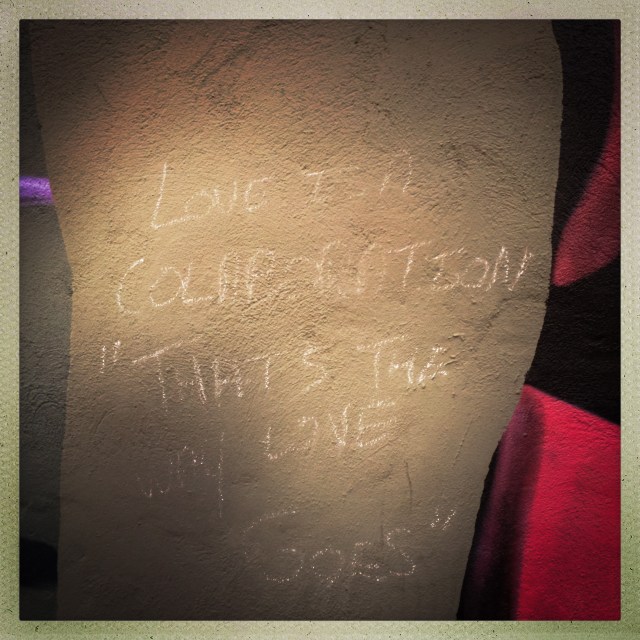 LOVE IS A
COLABORATION
"THAT'S THE
WAY LOVE
GOES"